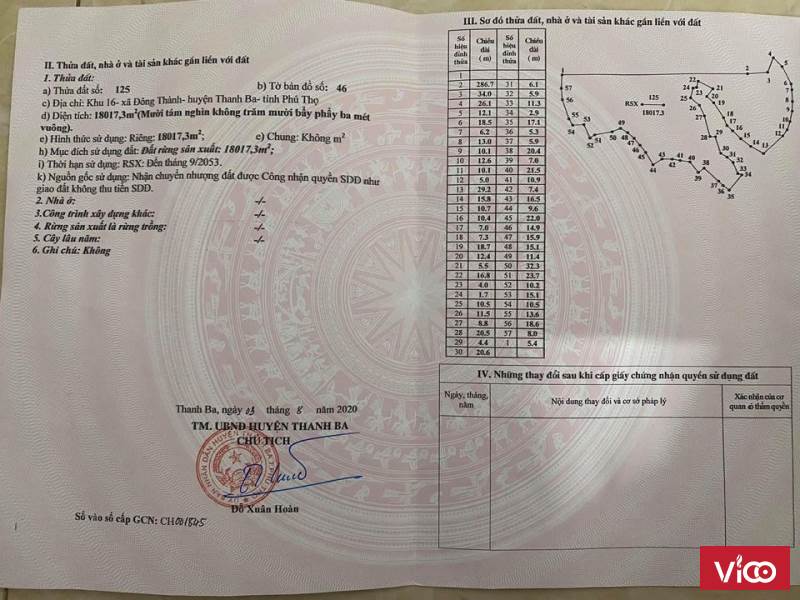 II. Thửa đất, nhà ở và tài sản khác gắn liền với đất
1. Thửa đất:
a) Thửa đất số: 125 b) Tờ bản đồ số: 46
c) Địa chỉ: Khu 16- xã Đông Thành- huyện Thanh Ba- tỉnh Phú Thọ
d) Diện tích: 18017,3m²(Mười tám nghìn không trăm mười bẩy phẩy ba mét
vuông).
e) Hình thức sử dụng: Riêng: 18017,3m²; e) Chung: Không m²
h) Mục đích sử dụng đất: Đất rừng sản xuất: 18017,3m²;
i) Thời hạn sử dụng: RSX: Đến tháng 9/2053.
k) Nguồn gốc sử dụng: Nhận chuyển nhượng đất được Công nhận quyền SDĐ như
giao đất không thu tiền SDĐ.
2. Nhà ở: -/-
3.Công trình xây dựng khác: -/-
4. Rừng sản xuất là rừng trồng: -/-
5. Cây lâu năm: -/-
6. Ghi chú: Không
Thanh Ba, ngày 03 tháng 8 năm 2020
TM. UBND HUYỆN THANH BA
CHỦ TỊCH
Đỗ Xuân Hoàn
Số vào sổ cấp GCN: CH001545
III. Sơ đồ thửa đất, nhà ở và tài sản khác gắn liền với đất
Số hiệu đỉnh thửa Chiều dài ( m ) Số hiệu đỉnh thửa Chiều dài ( m )
1
2 286.7 31 6.1
3 34.0 32 5.9
4 26.1 33 11.3
5 12.1 34 2.9
6 18.5 35 17.1
7 6.2 36 5.3
8 13.0 37 5.9
9 10.1 38 20.4
10 12.6 39 7.0
11 10.1 40 21.5
12 5.0 41 10.9
13 29.2 42 7.4
14 15.8 43 16.5
15 10.7 44 9.6
16 10.4 45 22.0
17 7.0 46 14.9
18 7.3 47 15.9
19 18.7 48 15.1
20 12.4 49 11.4
21 5.5 50 32.3
22 16.8 51 23.7
23 4.0 52 10.2
24 1.7 53 15.1
25 10.5 54 10.5
26 11.5 55 13.6
27 8.8 56 18.6
28 20.5 57 8.0
29 4.4 1 5.4
30 20.6
RSX 125
18017.3
IV. Những thay đổi sau khi cấp giấy chứng nhận quyền sử dụng đất
Ngày, tháng, năm Nội dung thay đổi và cơ sở pháp lý Xác nhận của cơ quan có thẩm quyền
ViCO